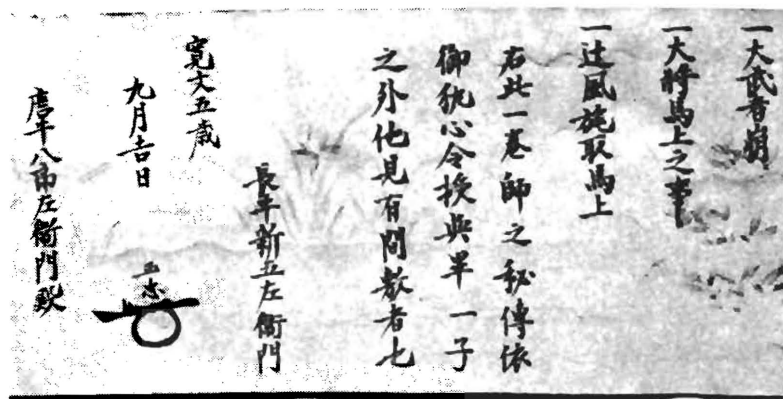 一大武者崩
一大将馬上之事
一辻風施取馬上
右此一巻師之秘傳依
御執心令授與畢一子
之外他見有間敷者也
長年新五左衛門
寛文五歳
九月吉日
唐牛八郎左衛門殿